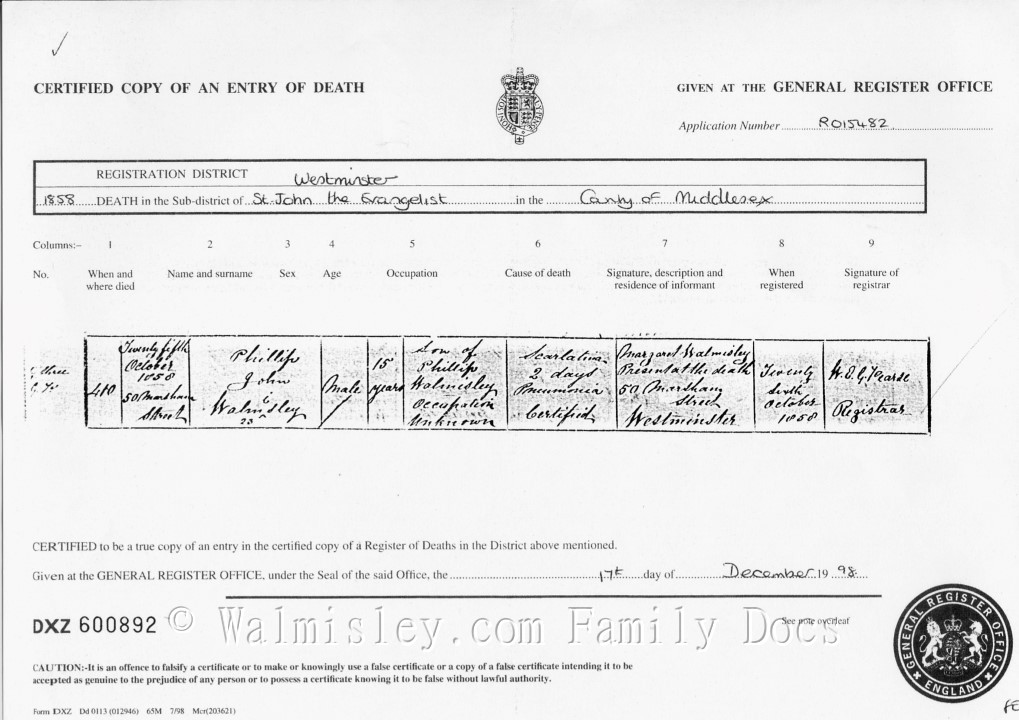 CERTIFIED COPY OF AN ENTRY OF DEATH
GIVEN AT THE GENERAL REGISTER OFFICE
Application Number R015482
REGISTRATION DISTRICT Westminster
1858 DEATH in the Sub-district of St. John the Evangelist in the County of Middlesex
Columns:- 1 2 3 4 5 6 7 8 9
No. When and where died Name and surname Sex Age Occupation Cause of death Signature, description and residence of informant When registered Signature of registrar
410
Twenty fifth
October
1858
50 Marsham
Street
Phillip
John
Walmisley
23
Male
15
years
Son of
Phillip
Walmisley
Occupation
Unknown
Scarlatina
2 days
Pneumonia
Certified
Margaret Walmisley
Present at the death
50 Marsham
Street
Westminster
Twenty
sixth
October
1858
Pearse
Registrar
CERTIFIED to be a true copy of an entry in the certified copy of a Register of Deaths in the District above mentioned.
Given at the GENERAL REGISTER OFFICE, under the Seal of the said Office, the 17th day of December 1998
DXZ 600892
© Walmisley.com Family Docs
See note overleaf
CAUTION:-It is an offence to falsify a certificate or to make or knowingly use a false certificate or a copy of a false certificate intending it to be
accepted as genuine to the prejudice of any person or to possess a certificate knowing it to be false without lawful authority.
Form DXZ Dd 0113 (012946) 65M 7/98 Mcr(203621)
GENERAL REGISTER OFFICE
ENGLAND